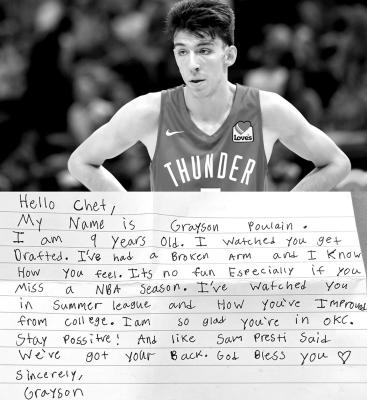 Loves
THUNDER
Hello Chet,
My Name is Grayson Poulain.
I am 9 years Old. I watched you get
Drafted. I've had a Broken Arm and I Know
How you feel. Its no fun Especially if you
Miss a NBA season. I've watched you
in Summer league and How you've Improved
from college. I am so glad you're in OKC.
Stay Possitve! And like Sam Presti Said
We've got your Back. God Bless you ♡
Sincerely,
Grayson